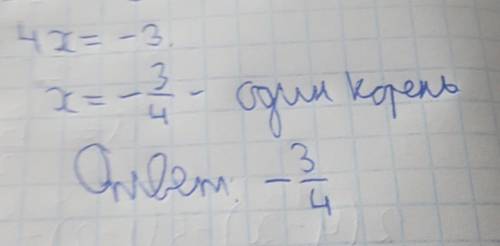 4x = -3.
x = -3/4 - один корень
Ответ: -3/4